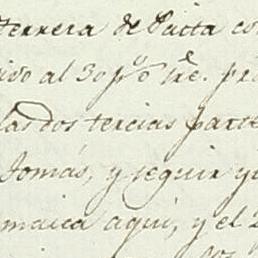 Herrera de Pacta co
ivo al 30 p.º o Tre. pr
las dos tercias parte
Tomás, y seguir y
maica aquí, y el